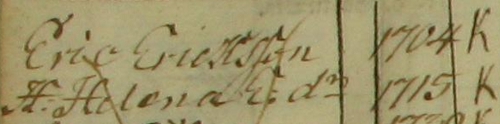 Eric Ericksson 1704 K
H. Helena E. dr 1715 K